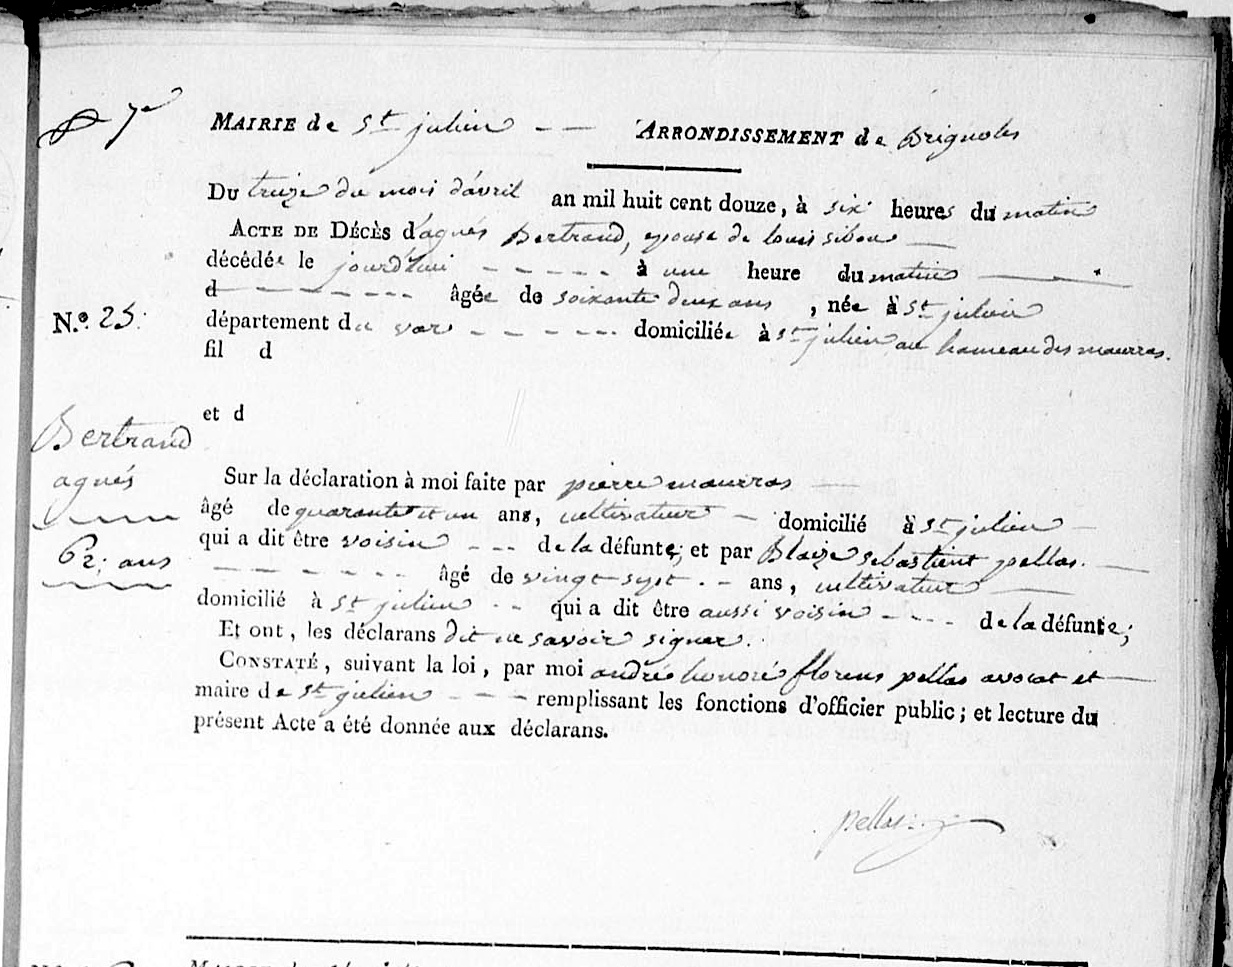 7e
MAIRIE de St julien ARRONDISSEMENT de Brignoles
Du treize du mois d'avril an mil huit cent douze, à six heures du matin
ACTE DE DÉCÈS d'agnés Bertrand, epouse de louis sibou
décédée le jourd'hui à une heure du matin
d âgée de soixante deux ans, née à St julien
N.º 25.
département du var domiciliée à St julien au hameau des maurras.
fil d
et d
Bertrand
agnés
62. ans
Sur la déclaration à moi faite par pierre maurras
âgé de quarante et un ans, cultivateur domicilié à St julien
qui a dit être voisin de la défunte; et par Blaize sebastient pellas.
âgé de vingt sept ans, cultivateur
domicilié à St julien qui a dit être aussi voisin de la défunte;
Et ont, les déclarans dit ne savoir signer.
CONSTATÉ, suivant la loi, par moi andré honoré florens pellas avocat et
maire de St julien remplissant les fonctions d'officier public; et lecture du
présent Acte a été donnée aux déclarans.
pellas